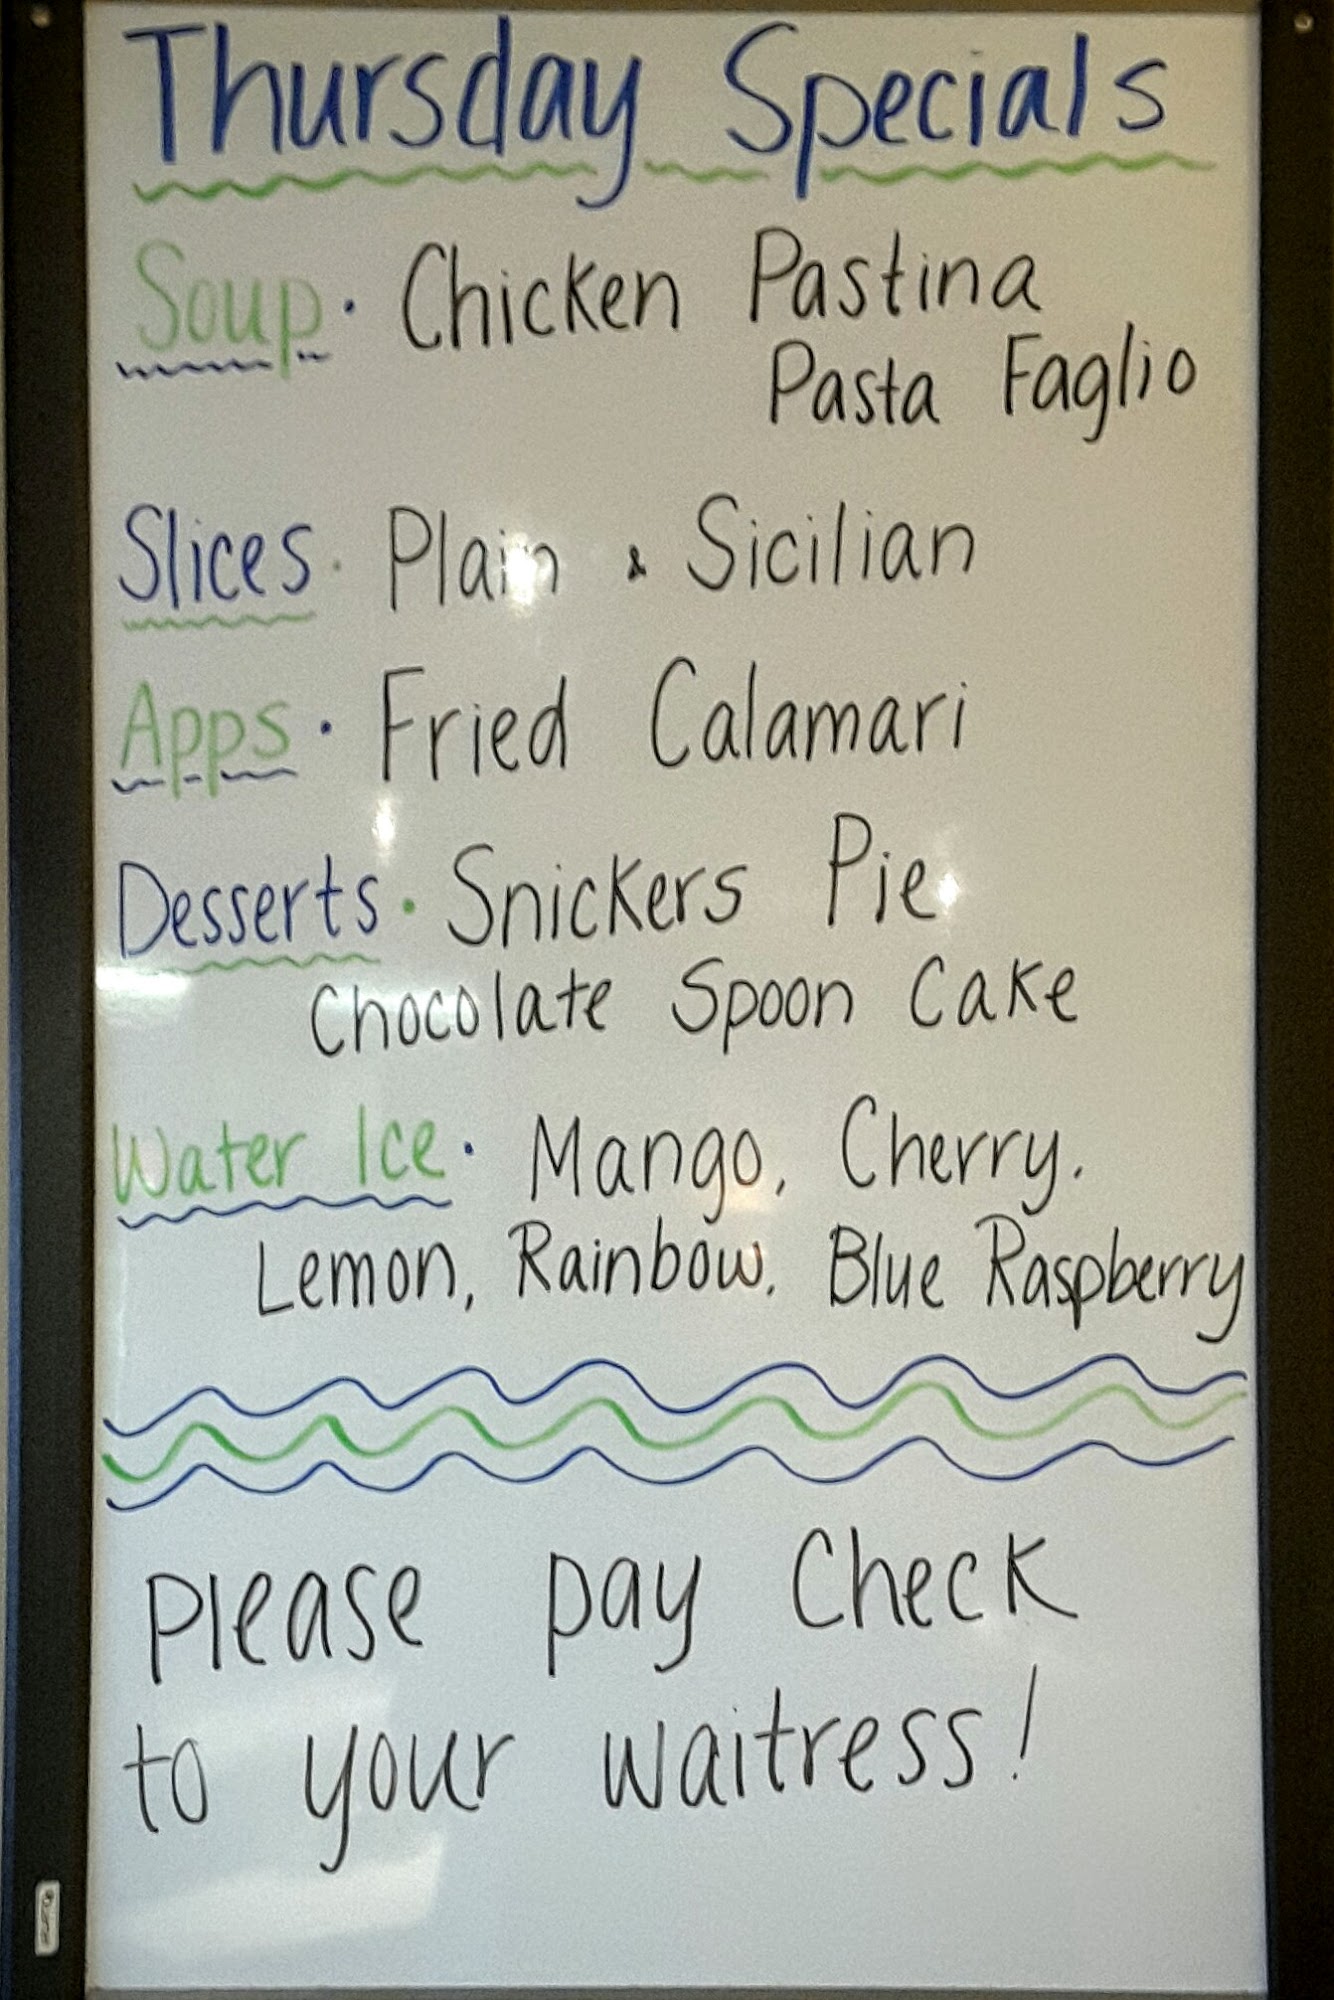 Thursday Specials
Soup · Chicken Pastina
Pasta Faglio
Slices · Plain & Sicilian
Apps · Fried Calamari
Desserts · Snickers Pie
Chocolate Spoon Cake
Water Ice · Mango, Cherry,
Lemon, Rainbow, Blue Raspberry
please pay check
to your waitress!